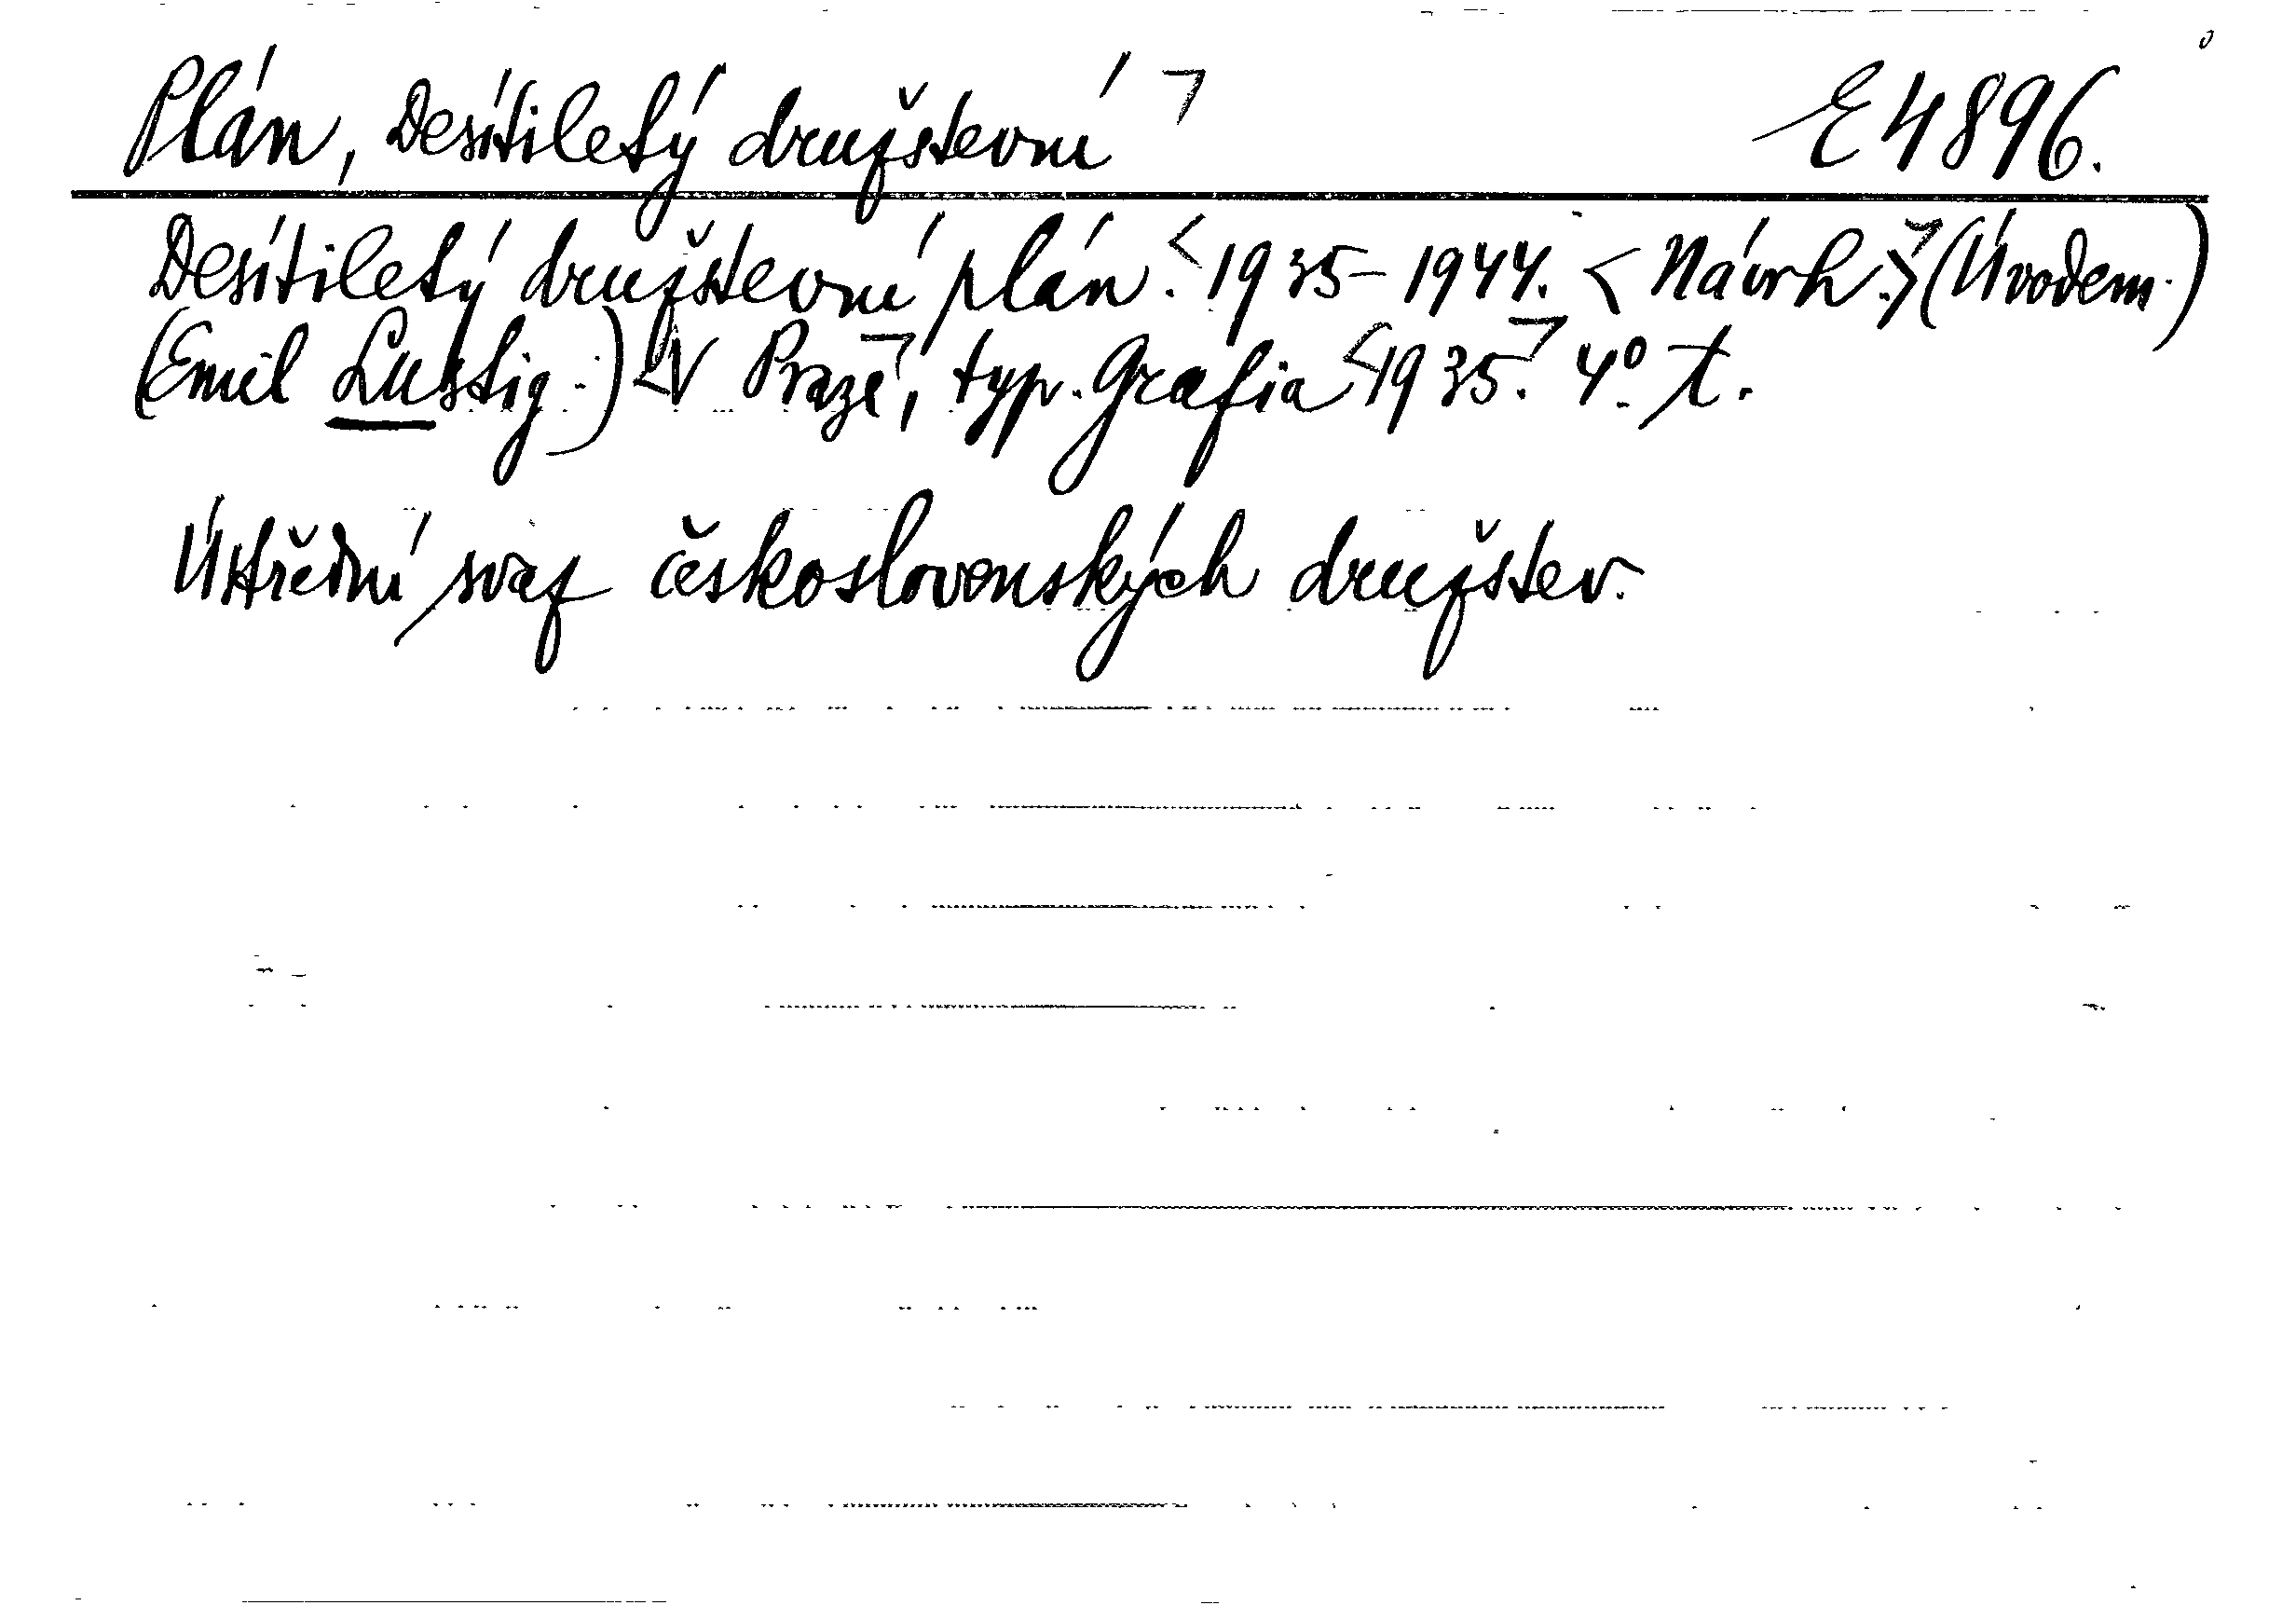 Plán, Desítiletý družstevní ¬ E 4896.
Desítiletý družstevní plán. <1935-1944. < Návrh.> (Úvodem.)
(Emil Lustig.) <V Praze¬, typ. Grafia <1935.¬ 4° t.
Ústřední svaz československých družstev.